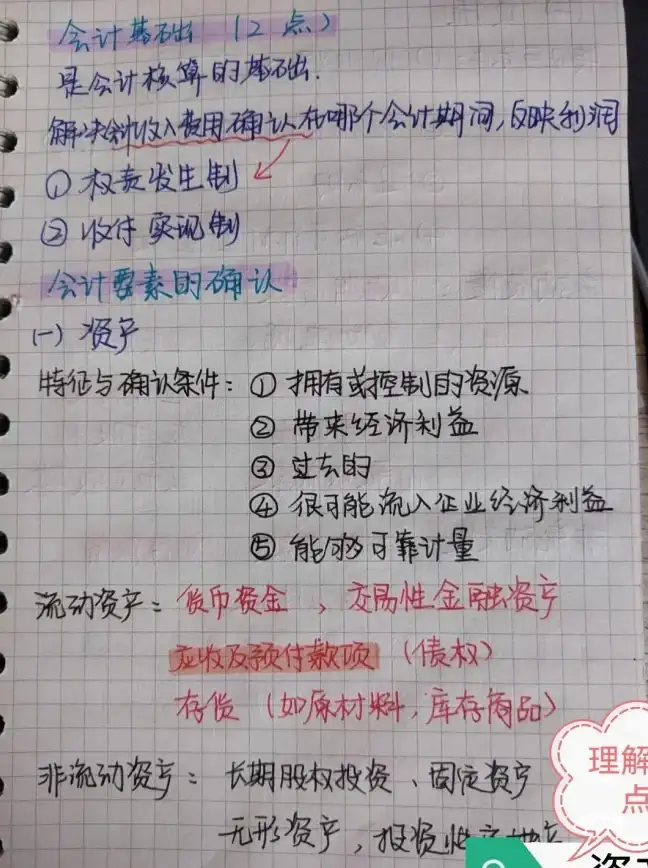 会计基础（2点）
是会计核算的基础.
解决收入费用确认在哪个会计期间,反映利润
① 权责发生制
② 收付实现制
会计要素的确认
(一) 资产
特征与确认条件: ① 拥有或控制的资源
② 带来经济利益
③ 过去的
④ 很可能流入企业经济利益
⑤ 能够可靠计量
流动资产: 货币资金、交易性金融资产
应收及预付款项（债权）
存货（如原材料,库存商品）
非流动资产: 长期股权投资、固定资产
无形资产,投资性房地产
理解
点